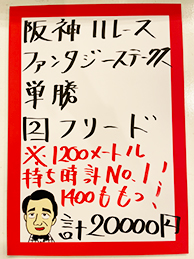 阪神11レース
ファンタジーステークス
単勝
2 フリード
※1200メートル
持ち時計No.1!!
1400ももつ!
計20000円